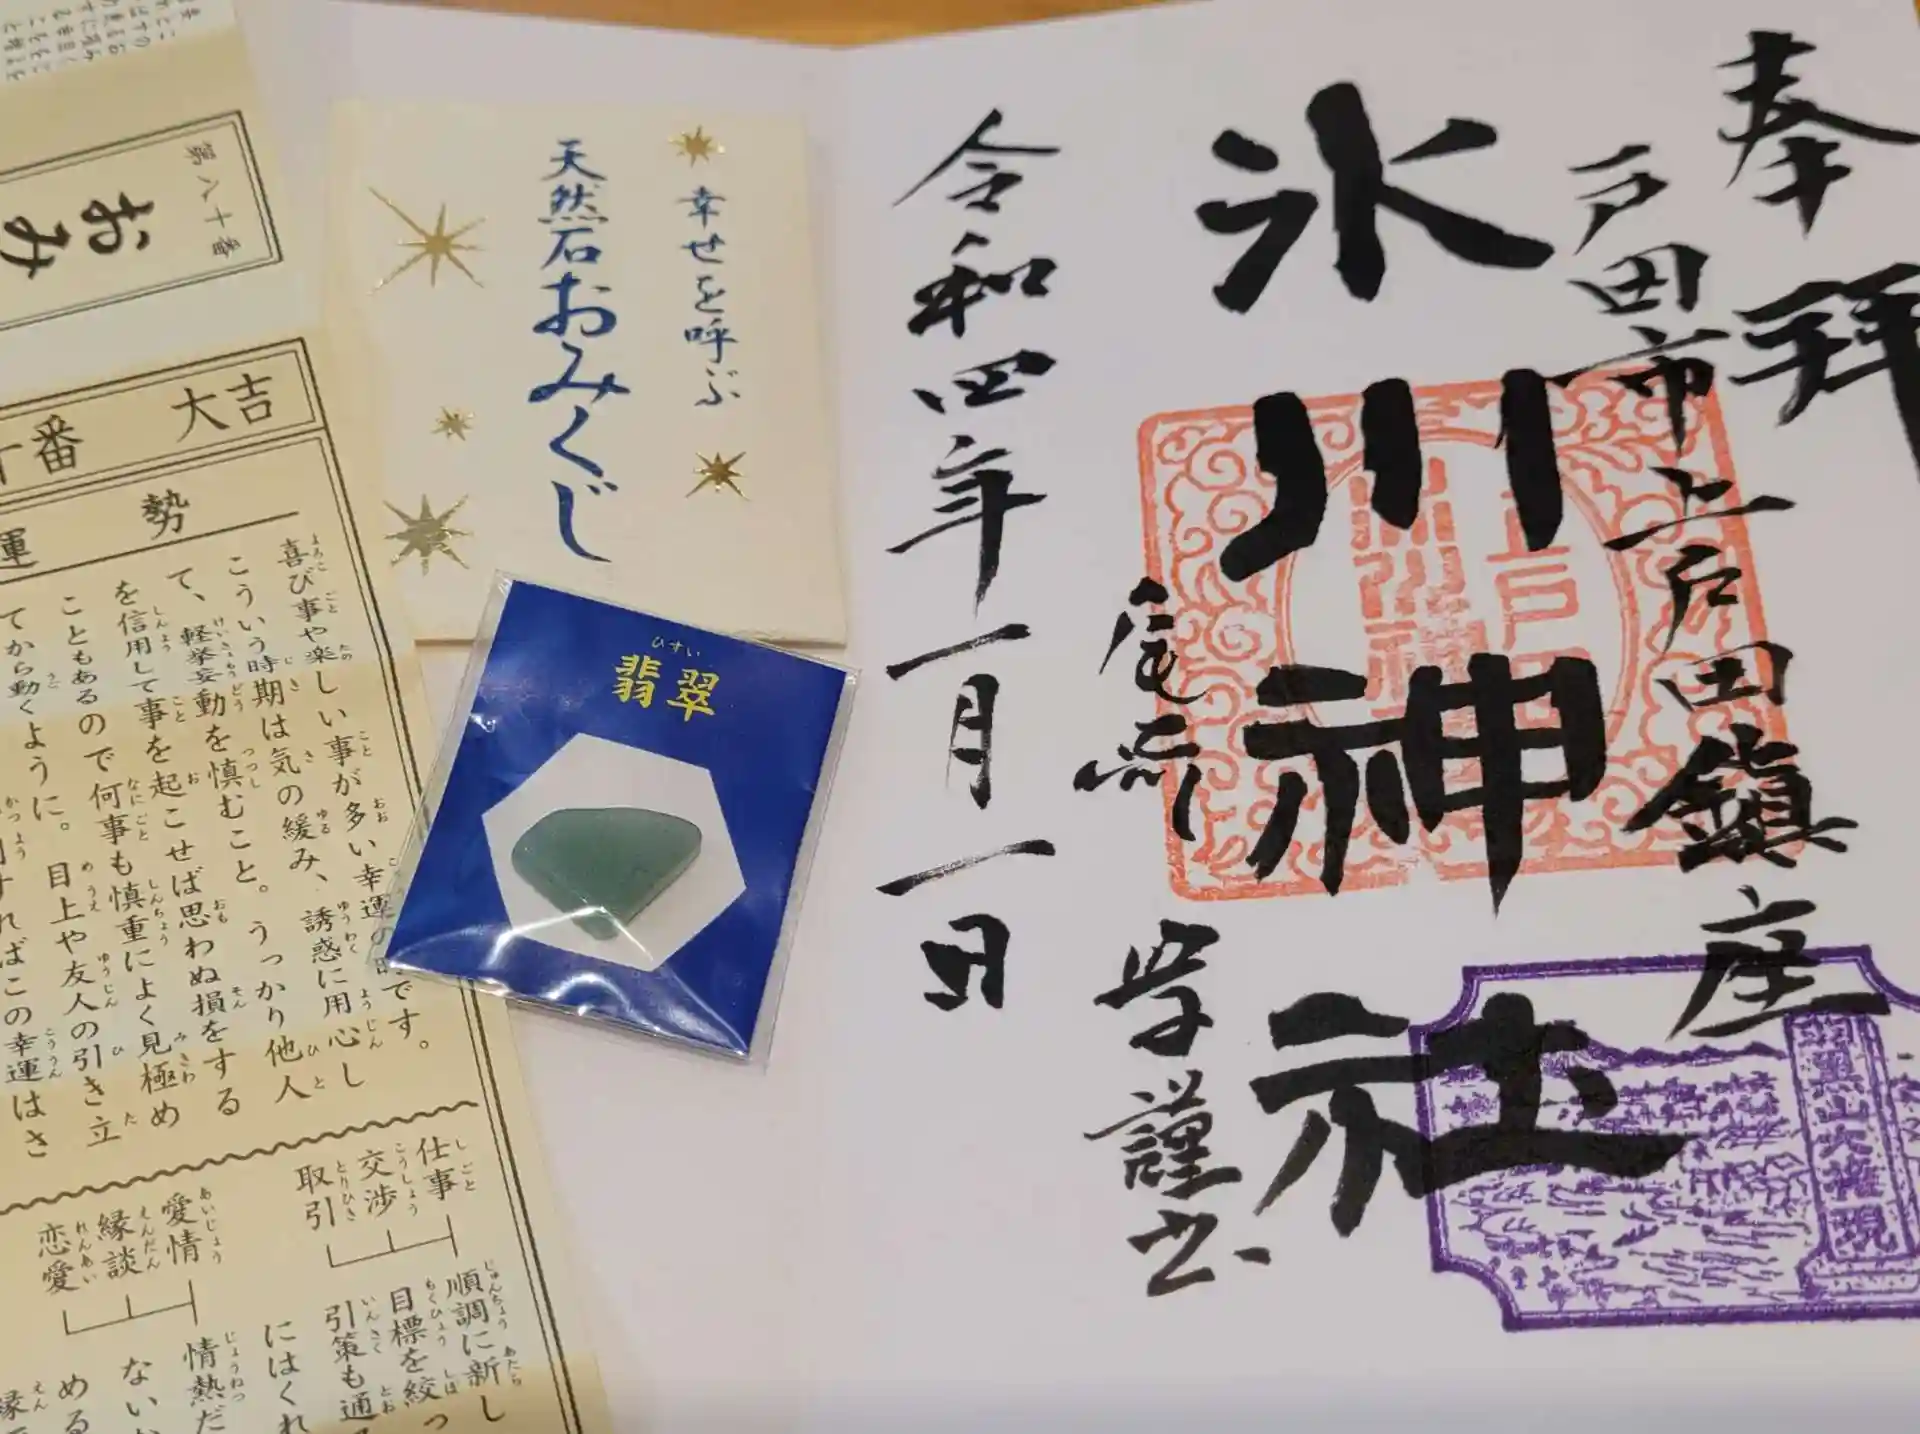 奉拝
戸田市上戸田鎮座
氷川神社
令和四年一月一日
謹書
上戸田
氷川神社
羽黒山大権現
幸せを呼ぶ
天然石おみくじ
ひすい
翡翠
第八十番
おみ
十番 大吉
運勢
喜び事や楽しい事が多い幸運の時です。
こういう時期は気の緩み、誘惑に用心し
て、軽挙妄動を慎むこと。うっかり他人
を信用して事を起こせば思わぬ損をする
こともあるので何事も慎重によく見極め
てから動くように。目上や友人の引き立
すればこの幸運はさ
仕事
交渉
取引
順調に新し
目標を絞っ
引策も通
にはくれ
愛情
縁談
恋愛
情熱だ
ないか
める